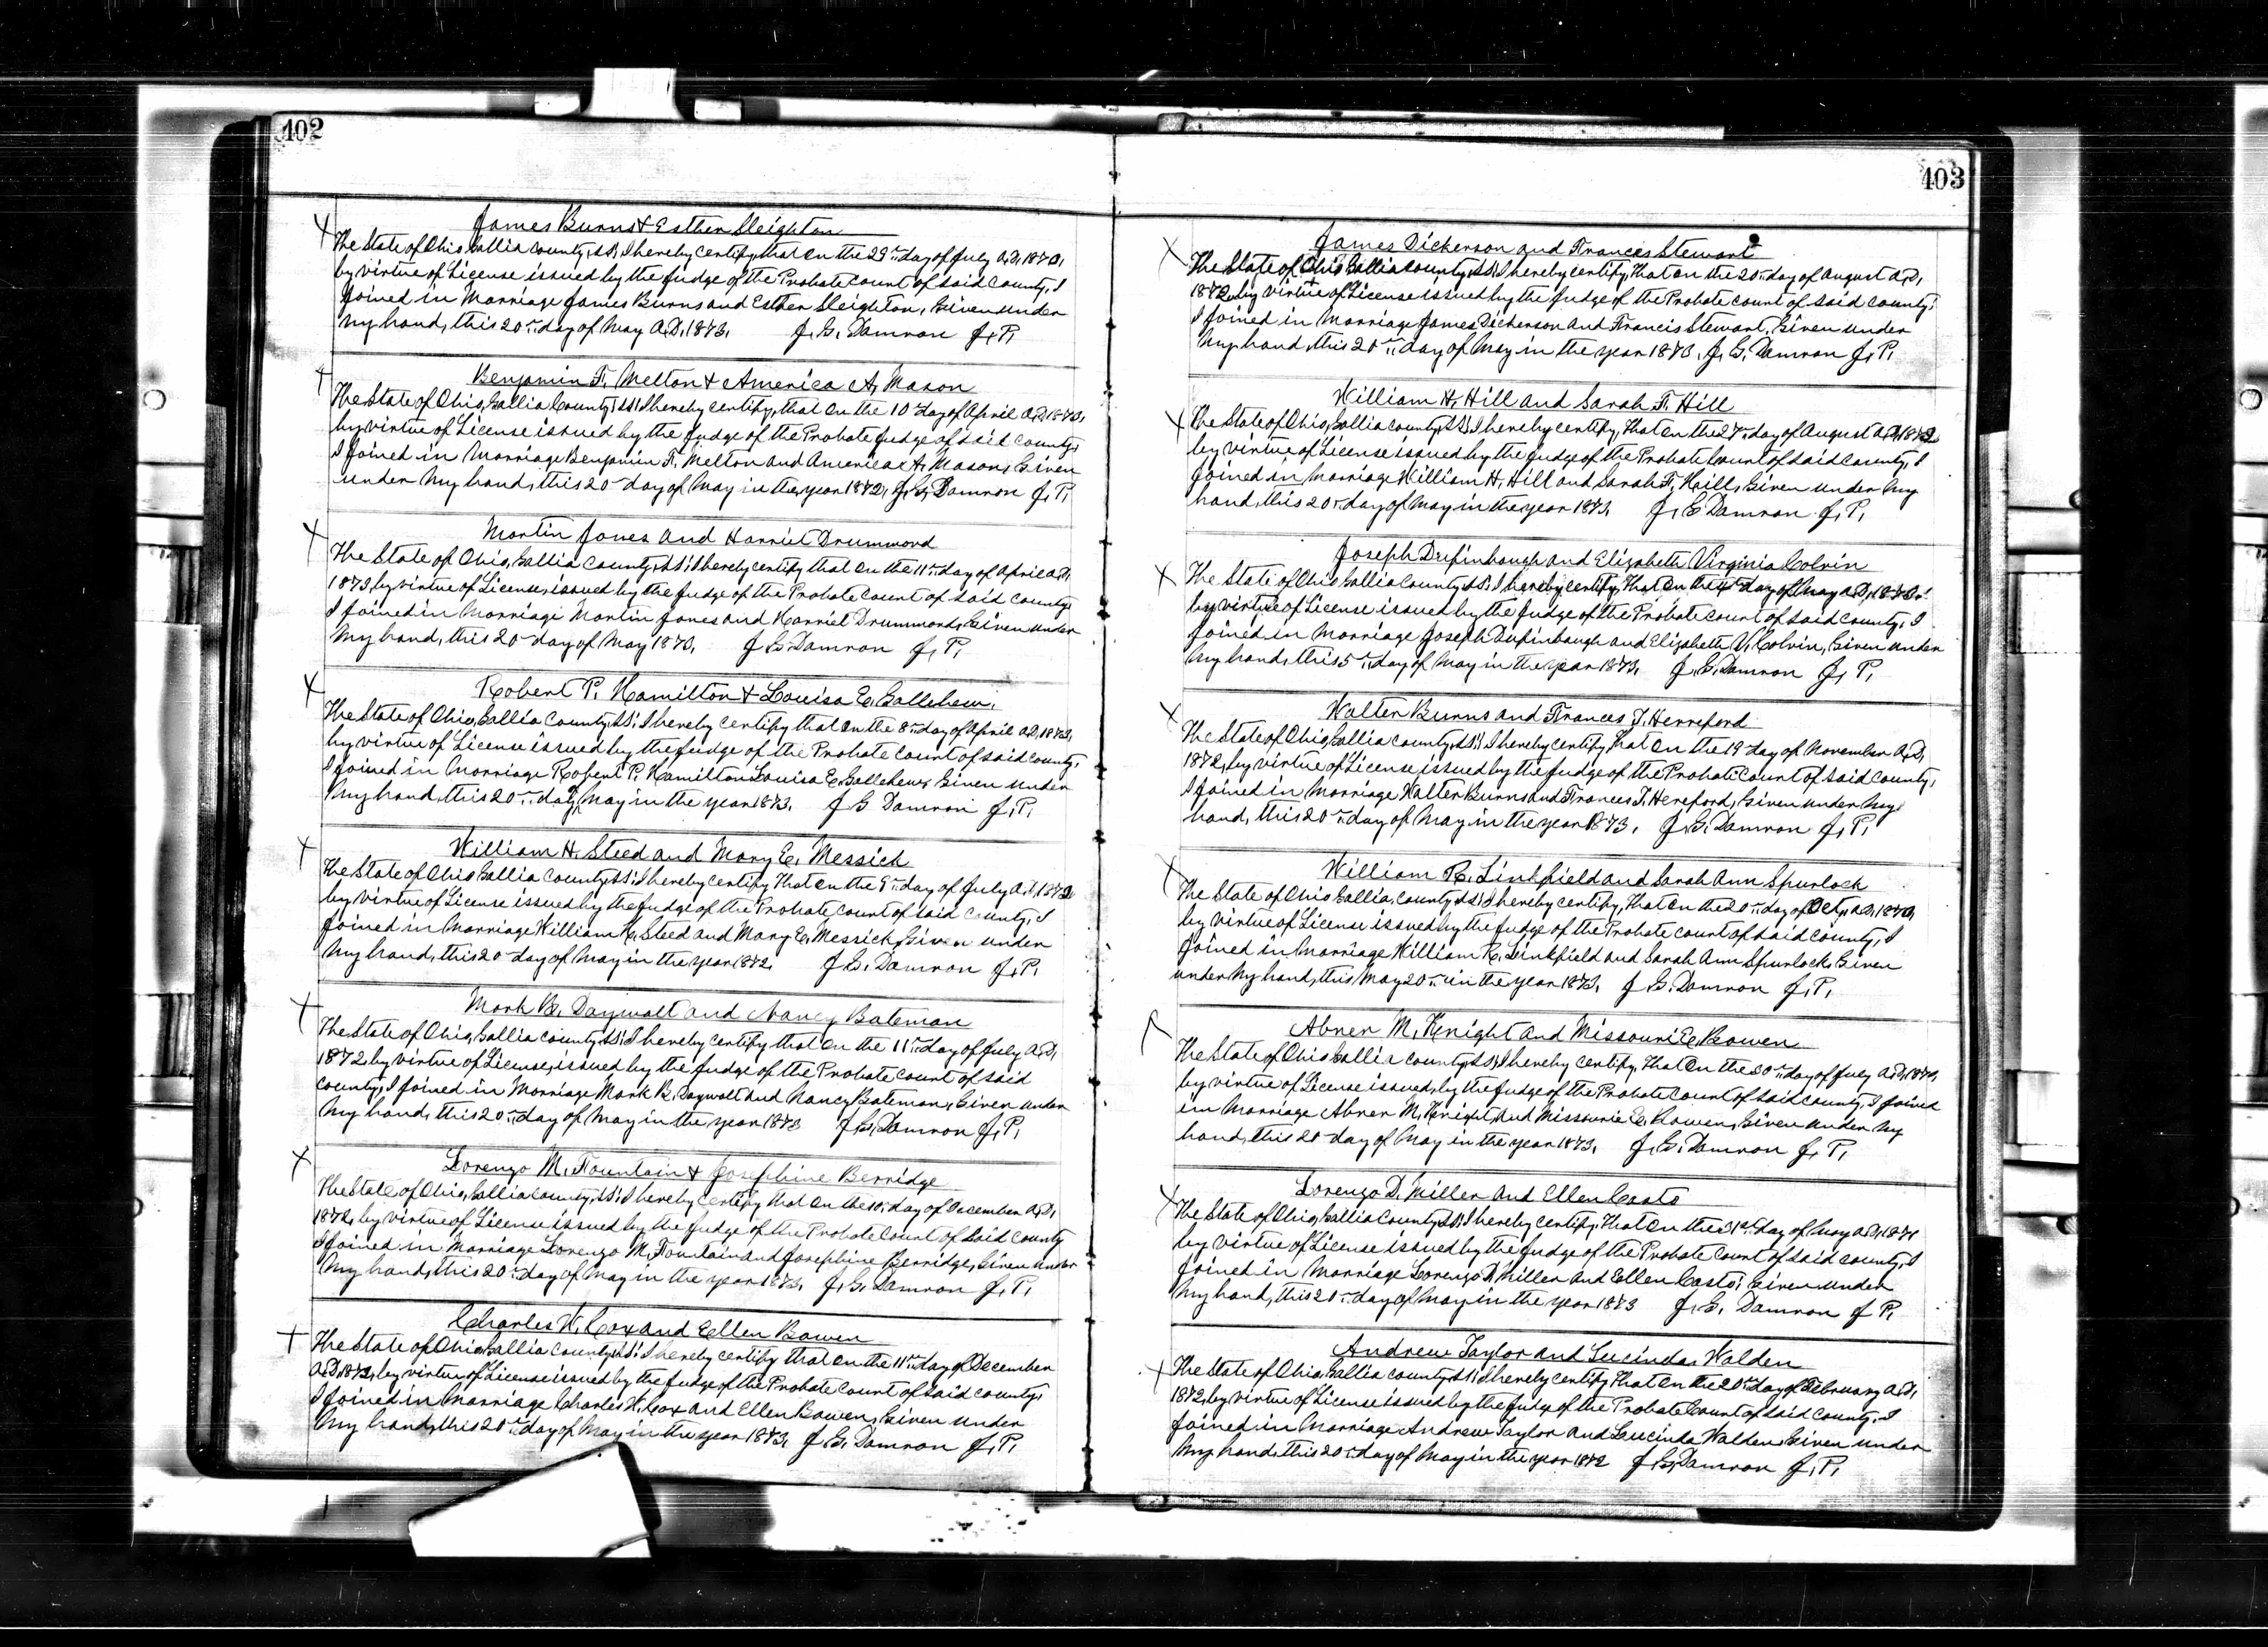 402
James Burns & Esther Sleighton
The State of Ohio, Gallia County, SS; I hereby certify, that on the 29th day of July A,D, 1872,
by virtue of License issued by the Judge of the Probate Court of said County, I
joined in Marriage James Burns and Esther Sleighton, Given under
my hand, this 20th day of May A.D, 1873. J. G. Damron J, P,
Benjamin F. Melton & America A, Mason
The State of Ohio, Gallia County, SS; I hereby certify, that on the 10th day of April A,D,
by virtue of License issued by the Judge of the Probate Judge of said County,
I joined in Marriage Benjamin F, Melton and America A. Mason, Given
under my hand, this 20th day of May in the year 1872, J, G, Damron J, P,
Martin Jones and Harriet Drummond
The State of Ohio, Gallia County, SS; I hereby certify that on the 11th day of April A,D,
1873, by virtue of License, issued by the Judge of the Probate Court of said County
I joined in Marriage Martin Jones and Harriet Drummond, Given under
my hand, this 20th day of May 1873, J G. Damron J, P,
Robert P. Hamilton & Louisa E, Gallehew,
The State of Ohio, Gallia County, SS; I hereby certify that on the 8th day of April A,D,
by virtue of License issued by the Judge of the Probate Court of said County,
I joined in Marriage Robert P. Hamilton Louisa E, Gallehew, Given under
my hand, this 20th day of May in the year 1873. J G Damron J, P,
William H. Steed and Mary E, Messick
The State of Ohio Gallia County, SS; I hereby certify that on the 9th day of July A,D, 1872
by virtue of License issued by the Judge of the Probate Court of said County, I
joined in Marriage William H. Steed and Mary E, Messick, Given under
my hand, this 20th day of May in the year 1872. J G. Damron J, P,
Mark B. Daywalt and Nancy Bateman
The State of Ohio, Gallia County, SS; I hereby certify that on the 11th day of July A,D,
1872, by virtue of License, issued by the Judge of the Probate Court of said
County, I joined in Marriage Mark B. Daywalt and Nancy Bateman, Given under
my hand, this 20th day of May in the year 1873 J G, Damron J, P,
Lorenzo M. Fountain & Josephine Berridge
The State of Ohio, Gallia County, SS; I hereby certify that on the day of December A,D,
1872, by virtue of License issued by the Judge of the Probate Court of said County
I joined in Marriage Lorenzo M. Fountain and Josephine Berridge, Given under
my hand, this 20th day of May in the year 1873, J, G. Damron J, P,
Charles W. Cox and Ellen Bowen
The State of Ohio Gallia County, SS; I hereby certify that on the 11th day of December
A,D, 1872, by virtue of License issued by the Judge of the Probate Court of said County,
I joined in Marriage Charles W. Cox and Ellen Bowen, Given under
my hand, this 20th day of May in the year 1873, J, G. Damron J, P,
403
James Dickerson and Frances Stewart
The State of Ohio Gallia County, SS; I hereby certify, that on the 20th day of August A,D,
1872, by virtue of License issued by the Judge of the Probate Court of said County,
I joined in Marriage James Dickerson and Francis Stewart, Given under
my hand, this 20th day of May in the year 1873, J, G, Damron J, P,
William H, Hill and Sarah F. Hill
The State of Ohio, Gallia County, SS; I hereby certify, that on the 27th day of August A,D, 1872
by virtue of License issued by the Judge of the Probate Court of said County, I
joined in Marriage William H, Hill and Sarah F, Hill, Given under my
hand, this 20th day of May in the year 1873, J, G Damron J, P,
Joseph Dufinbaugh and Elizabeth Virginia Colvin
The State of Ohio Gallia County, SS; I hereby certify, that on the day of May A,D,
by virtue of License issued by the Judge of the Probate Court of said County, I
joined in Marriage Joseph Dufinbaugh and Elizabeth V, Colvin, Given under
my hand, this 5th day of May in the year 1873, J, G. Damron J, P,
Walter Burns and Frances J. Herreford
The State of Ohio, Gallia County, SS; I hereby certify, that on the 19 day of November A,D,
1872, by virtue of License issued by the Judge of the Probate Court of said County,
I joined in Marriage Walter Burns and Frances J. Hereford, Given under my
hand, this 20th day of May in the year 1873, J, G. Damron J, P,
William R. Linkfield and Sarah Ann Spurlock
The State of Ohio Gallia, County, SS; I hereby certify, that on the 20th day of Oct, A,D,
by virtue of License issued by the Judge of the Probate Court of said County, I
joined in Marriage William R. Linkfield and Sarah Ann Spurlock, Given
under my hand, this May 20th in the year 1873, J G. Damron J, P,
Abner M, Knight and Missouri E, Bowen
The State of Ohio Gallia County, SS; I hereby certify, that on the 30th day of July A,D,
by virtue of License issued, by the Judge of the Probate Court of said County, I joined
in Marriage Abner M, Knight, and Missourie E, Bowen, Given under my
hand, this 20 day of May in the year 1873, J, G. Damron J, P,
Lorenzo D. Miller and Ellen Casto
The State of Ohio, Gallia County, SS; I hereby certify, that on the 31st day of May A,D, 1871
by virtue of License issued by the Judge of the Probate Court of said County, I
joined in Marriage Lorenzo D. Miller and Ellen Casto, Given under
my hand, this 20th day of May in the year 1873 J, G, Damron J P,
Andrew Taylor and Lucinda Walden
The State of Ohio, Gallia County, SS; I hereby certify that on the 20th day of February A,D,
1872, by virtue of License issued by the Judge of the Probate Court of said County, I
joined in Marriage Andrew Taylor and Lucinda Walden, Given under
my hand, this 20th day of May in the year 1872 J, G, Damron J, P,